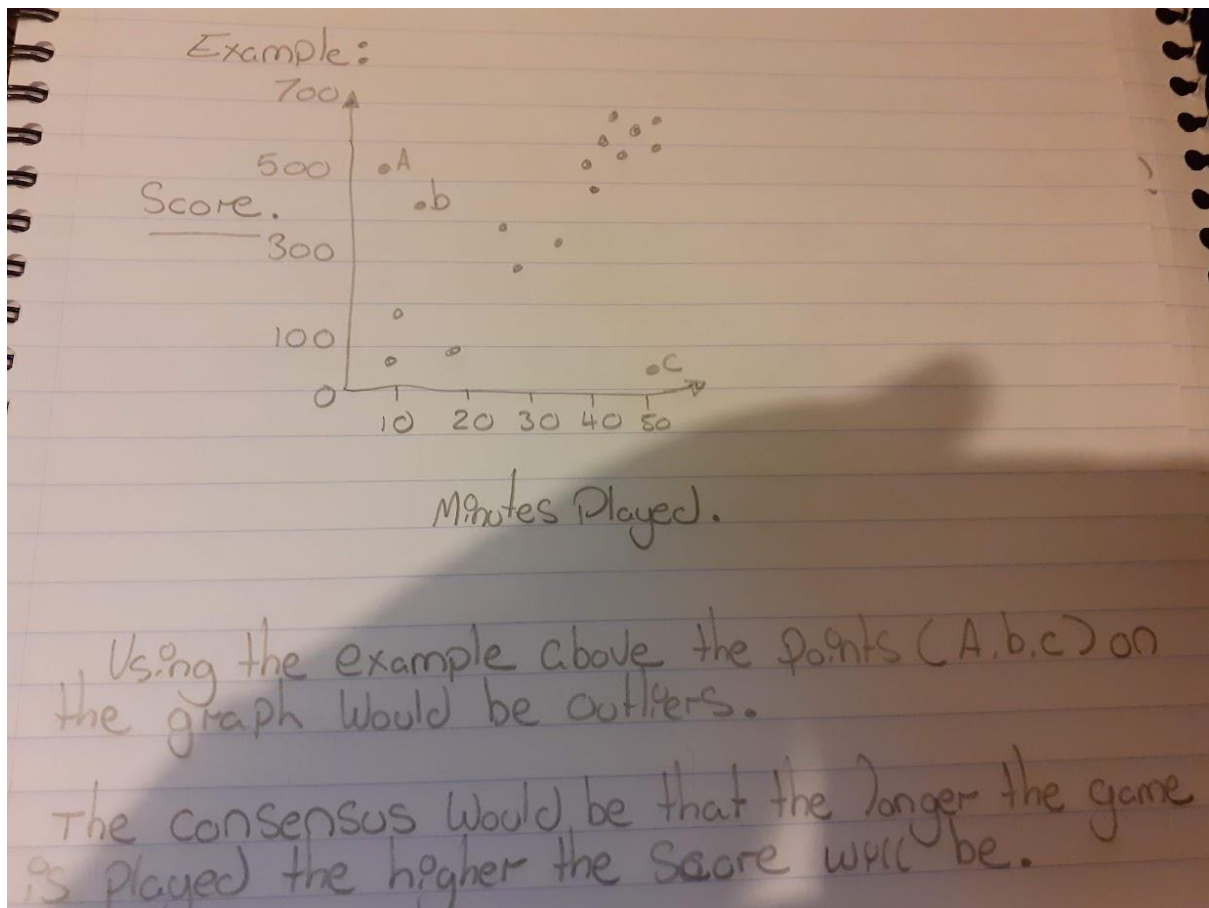 Example:
700
500
A
b
Score.
300
100
c
0
10 20 30 40 50
Minutes Played.
Using the example above the points (A.b.c) on
the graph would be outliers.
The consensus would be that the longer the game
is played the higher the score will be.